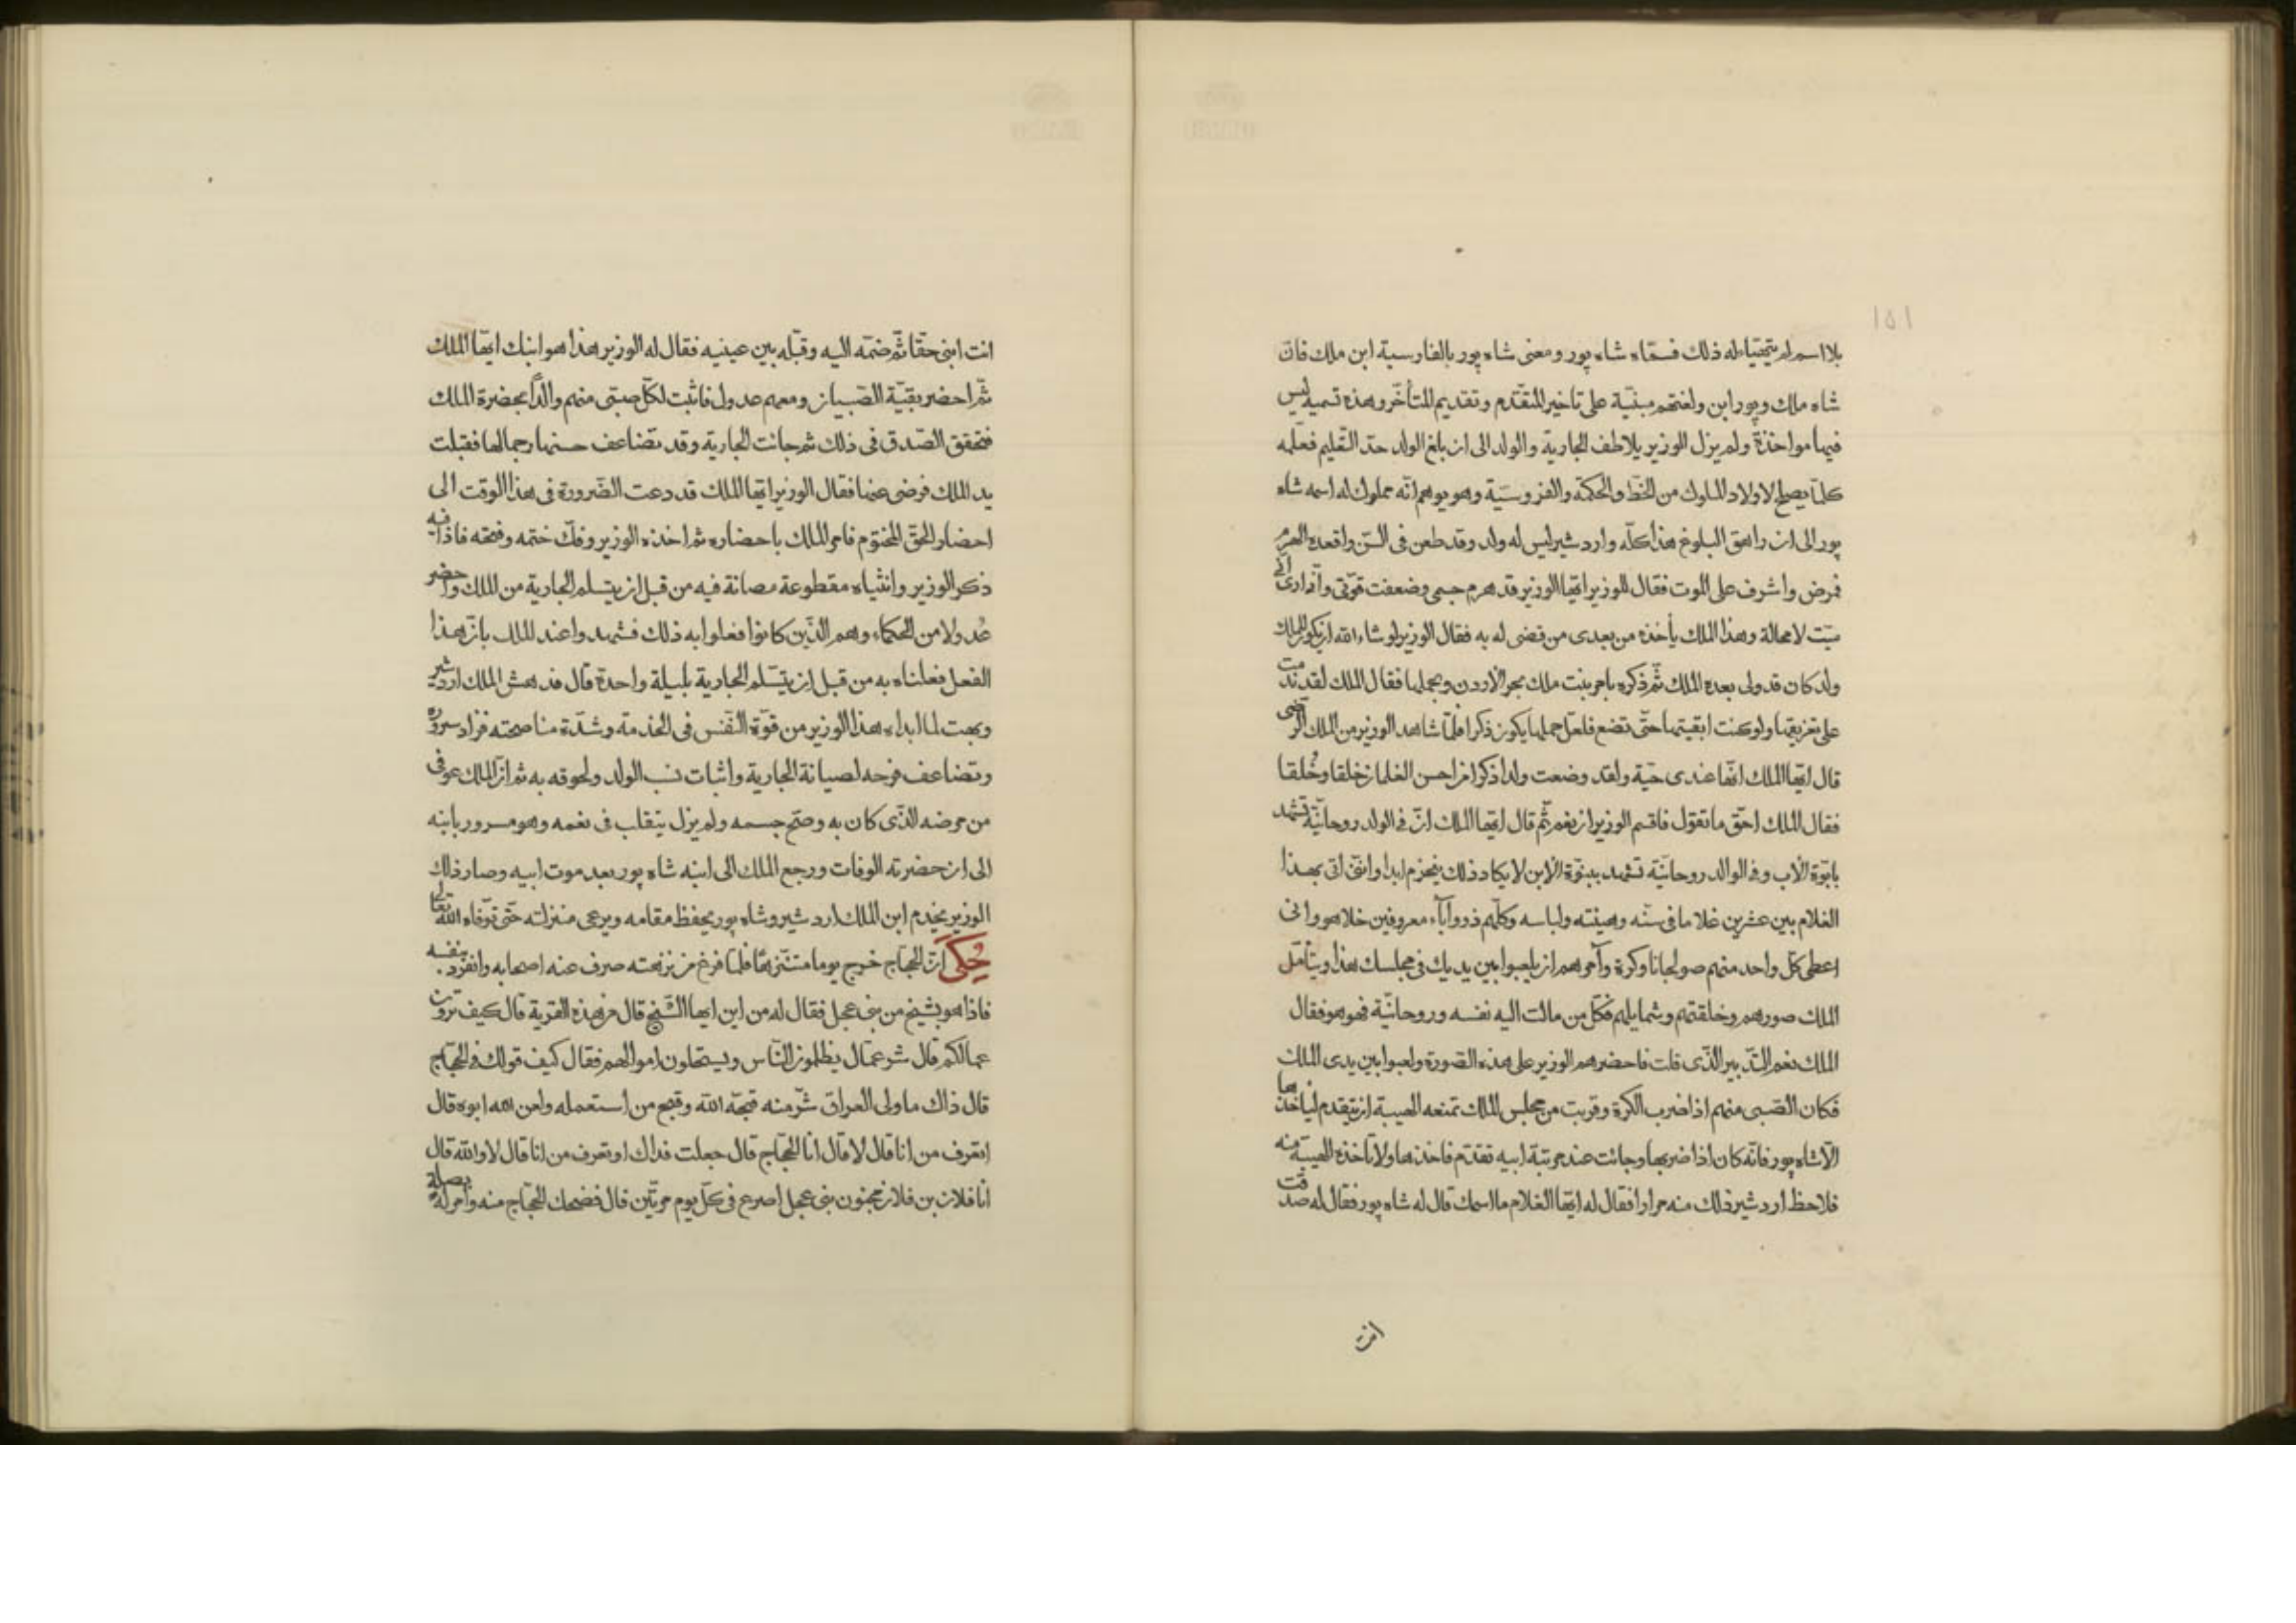 ١٥١
بلا اسم لم يتهيّاء له ذلك فسمّاه شاه پور ومعنى شاه پور بالفارسية ابن ملك فانّ
شاه ملك وپور ابن ولغتهم مبنيّة على تاخير المتقدّم وتقديم المتأخّر وهذه تسمية ليس
فيها مواخذة ولم يزل الوزير يلاطف الجارية والولد الى ان بلغ الولد حدّ التعليم فعلّمه
كلّما يصلح لاولاد الملوك من الخطّ والحكمة والفروسيّة وهو يوهم انّه مملوك له اسمه شاه
پور الى ان راهق البلوغ هذا كلّه واردشير ليس له ولد وقد طعن فى السّن واقعده الهرم
فمرض واشرف على الموت فقال للوزير ايّها الوزير قد هرم جسمى وضعفت قوّتى وانّى ارى
ميّت لا محالة وهذا الملك يأخذه من بعدى من قضى له به فقال الوزير لو شاء الله ان يكون للملك
ولد كان قد ولى بعده الملك ثمّ ذكره بامر بنت ملك بحر الاردن وبحملها فقال الملك لقد ندمت
على تغريقها ولو كنت ابقيتها حتّى تضع فلعلّ حملها يكون ذكرا فلمّا شاهد الوزير من الملك الرضى
قال ايّها الملك انّها عندى حيّة ولقد وضعت ولدا ذكرا من احسن الغلمان خلقا وخُلقا
فقال الملك احقّ ما تقول فاقسم الوزير ان نعم ثمّ قال ايّها الملك انّ فى الولد روحانيّة تشهد
بابوّة الاب وفى الوالد روحانيّة تشهد ببنوّة الابن لا يكاد ذلك ينخرم ابدا واننى اتى بهذا
الغلام بين عشرين غلاما فى سنّه وهيئته ولباسه وكلّهم ذووا آباء معروفين خلا هو وانى
اعطى كلّ واحد منهم صولجانا وكرة وآمرهم ان يلعبوا بين يديك فى مجلسك هذا ويتأمّل
الملك صورهم وخلقتهم وشمايلهم فكلّ من مالت اليه نفسه وروحانيّة فهو هو فقال
الملك نعم التّدبير الذّى قلت فاحضرهم الوزير على هذه الصّورة ولعبوا بين يدى الملك
فكان الصّبى منهم اذا ضرب الكرة وقربت من مجلس الملك تمنعه الهيبة ان يتقدم لياخذها
الّا شاه پور فانّه كان اذا ضربها وجائت عند مرتبة ابيه تقدّم فاخذها ولا تأخذه الهيبة منه
فلاحظ اردشير ذلك منه مرارا فقال له ايّها الغلام ما اسمك قال له شاه پور فقال له صدقت
انت
انت ابنى حقا ثمّ ضمّه اليه وقبّله بين عينيه فقال له الوزير هذا هو ابنك ايّها الملك
ثمّ احضر بقيّة الصّبيان ومعهم عدول فاثبت لكلّ صبّى منهم والدًا بحضرة الملك
فتحقق الصّدق فى ذلك ثم جائت الجارية وقد تضاعف حسنها وجمالها فقبلت
يد الملك فرضى عنها فقال الوزير ايّها الملك قد دعت الضّرورة فى هذا الوقت الى
احضار الحقّ المختوم فامر الملك باحضاره ثم اخذه الوزير وفكّ ختمه وفتحه فاذا فيه
ذكر الوزير وانثياه مقطوعة مصانة فيه من قبل ان يتسلم الجارية من الملك واحضر
عُدولا من الحكماء وهم الذّين كانوا فعلوا به ذلك فشهدوا عند الملك بانّ هذا
الفعل فعلناه به من قبل ان يتسّلم الجارية بليلة واحدة قال فدهش الملك اردشير
وبهت لما ابداه هذا الوزير من قوّة النّفس فى الخدمة وشدّة مناصحته فزاد سروره
وتضاعف فرحه لصيانة الجارية واثبات نسب الولد ولحوقه به ثم انّ الملك عوفى
من مرضه الذّى كان به وصحّ جسمه ولم يزل يتقلب فى نعمه وهو مسرور بابنه
الى ان حضرته الوفات ورجع الملك الى ابنه شاه پور بعد موت ابيه وصار ذلك
الوزير يخدم ابن الملك اردشير وشاه پور يحفظ مقامه ويرعى منزلته حتّى توّفاه الله تعالى
حُكىَ انّ الحجّاج خرج يوما متنزّها فلمّا فرغ من نزهته صرف عنه اصحابه وانفرد بنفسه
فاذا هو بشيخ من بنى عجل فقال له من اين ايها الشّيخ قال من هذه القرية قال كيف ترون
عمالكم قال شر عمّال يظلمون النّاس ويستحلون اموالهم فقال كيف قولك فى الحجّاج
قال ذاك ما ولى العراق شرّ منه قبحّه الله وقبح من استعمله ولعن الله ابوه قال
اتعرف من انا قال لا قال انا الحجّاج قال جعلت فداك او تعرف من انا قال لا والله قال
انا فلان بن فلان مجنون بنى عجل اصرع فى كلّ يوم مرّتين قال فضحك الحجّاج منه وامر له بصلة